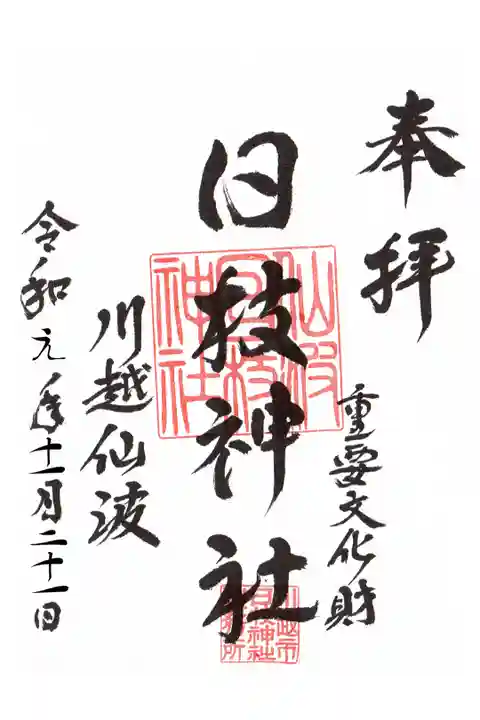 奉拝
重要文化財
日枝神社
川越仙波
令和元年十一月二十一日
仙波
日枝
神社
川越市
日枝神社